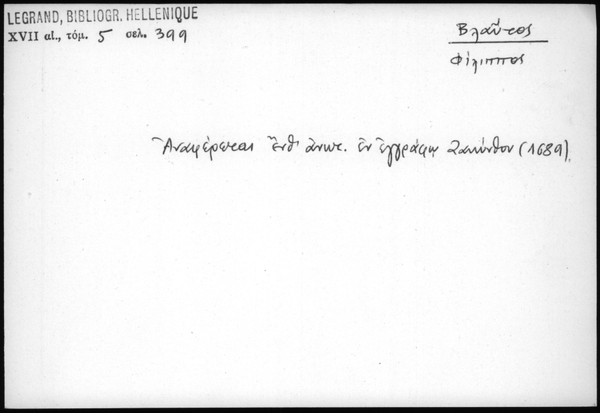 LEGRAND, BIBLIOGR. HELLENIQUE
XVII αἰ., τόμ. 5 σελ. 399
Βλαῦτος
Φίλιππος
Ἀναφέρεται ἔνθ' ἀνωτ. ἐν ἐγγράφῳ Ζακύνθου (1689).